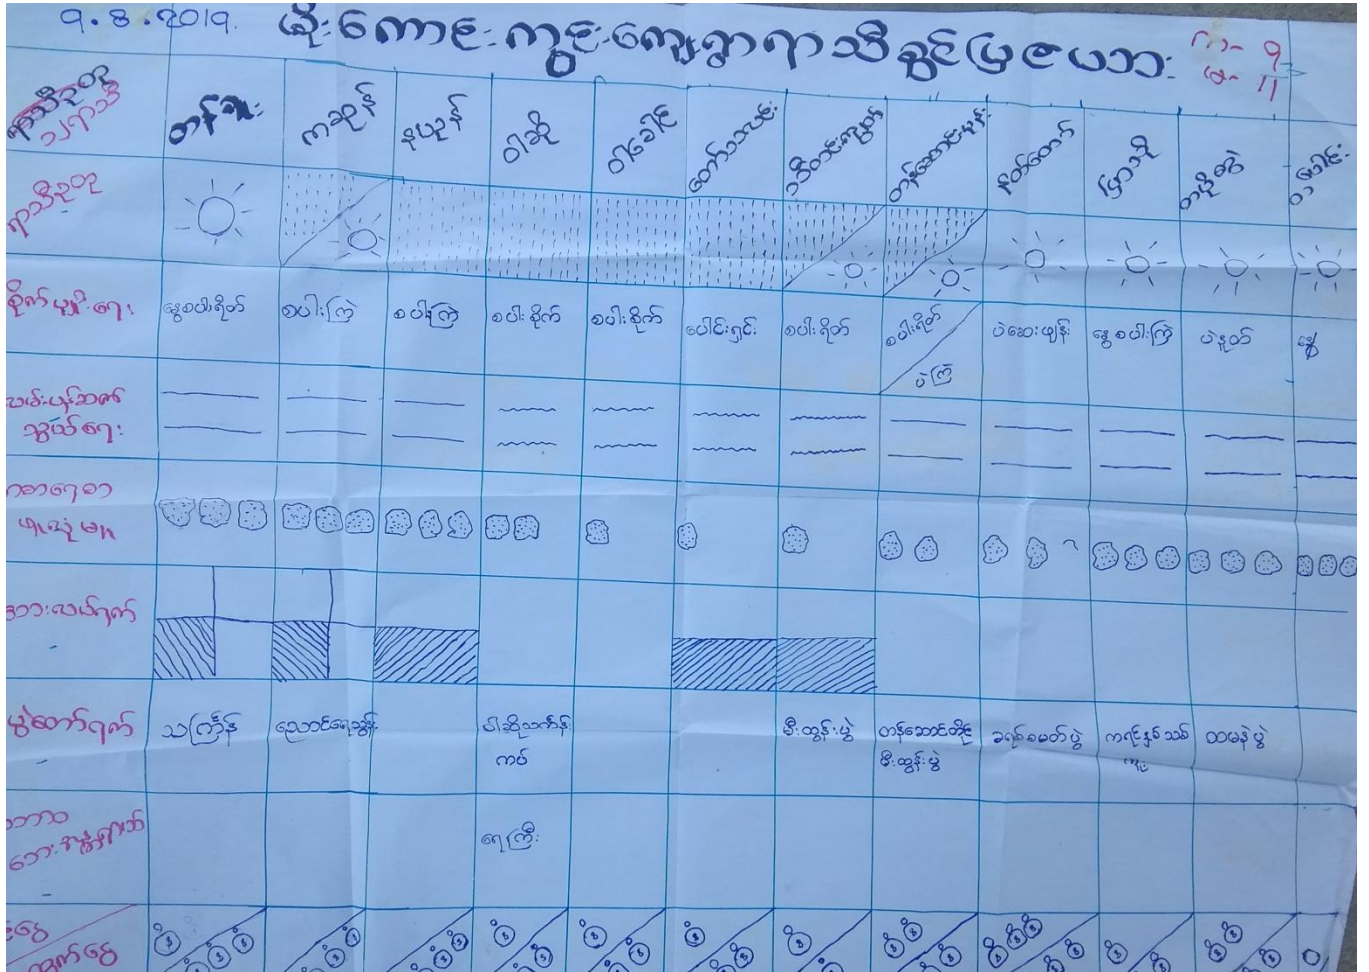 ၇.၈.၂၀၁၉.
ကျေးရွာရာသီခွင်ပြဇယား
ကျ- ၇
မ- ၁၁
ရာသီဥတု
၁၂ရာသီ
တန်ခူး
ကဆုန်
နယုန်
ဝါဆို
ဝါခေါင်
တော်သလင်း
သီတင်းကျွတ်
တန်ဆောင်မုန်း
နတ်တော်
ပြာသို
တပို့တွဲ
တပေါင်း
ရာသီဥတု
စိုက်ပျိုးရေး
နွေစပါးရိတ်
စပါးကြဲ
စပါးကြဲ
စပါးစိုက်
စပါးစိုက်
ပေါင်းရှင်း
စပါးရိတ်
စပါးရိတ်
ပဲကြဲ
ပဲဆေးဖျန်း
နွေစပါးကြဲ
ပဲနှုတ်
နွေ
လမ်းပန်းဆက်
သွယ်ရေး
ပွဲတော်ရက်
သင်္ကြန်
ညောင်ရေသွန်း
ဝါဆိုသင်္ကန်း
ကပ်
မီးထွန်းပွဲ
တန်ဆောင်တိုင်
မီးထွန်းပွဲ
ခရစ္စမတ်ပွဲ
ကရင်နှစ်သစ်
ကူး
ထမနဲပွဲ
ဘေးအန္တရာယ်
ရေကြီး
ထွက်ငွေ